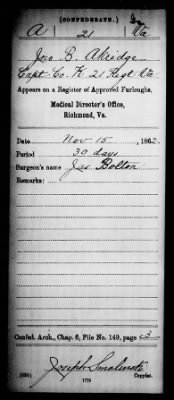 (CONFEDERATE.)
A 21 Va
Jno B. Akridge
Capt Co. K 21 Regt Va
Appears on a Register of Approved Furloughs,
Medical Director's Office,
Richmond, Va.
Date Nov 15, 1862.
Period 30 days
Surgeon's name Jas Bolton
Remarks:
Confed. Arch., Chap. 6, File No. 149, page 63
Joseph
Copyist.